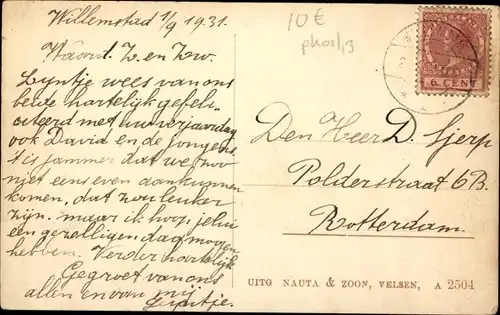 Willemstad 1/9 1931.
10 €
Waard. Z. en Zw.
Lijntje wees van ons
beide hartelijk gefeli-
citeerd met uw verjaardag
ook David en de jongens
't is jammer dat we zoo
niet eens even aankunnen
komen, dat zou leuker
zijn. maar ik hoop jelui
een gezelligen dag moogen
hebben. Verder hartelijk
Gegroet van ons
allen en van mij
Lijntje.
6 CENT
Den Heer D. Gerp
Polderstraat 6B.
Rotterdam.
UITG NAUTA & ZOON, VELSEN, A 2504